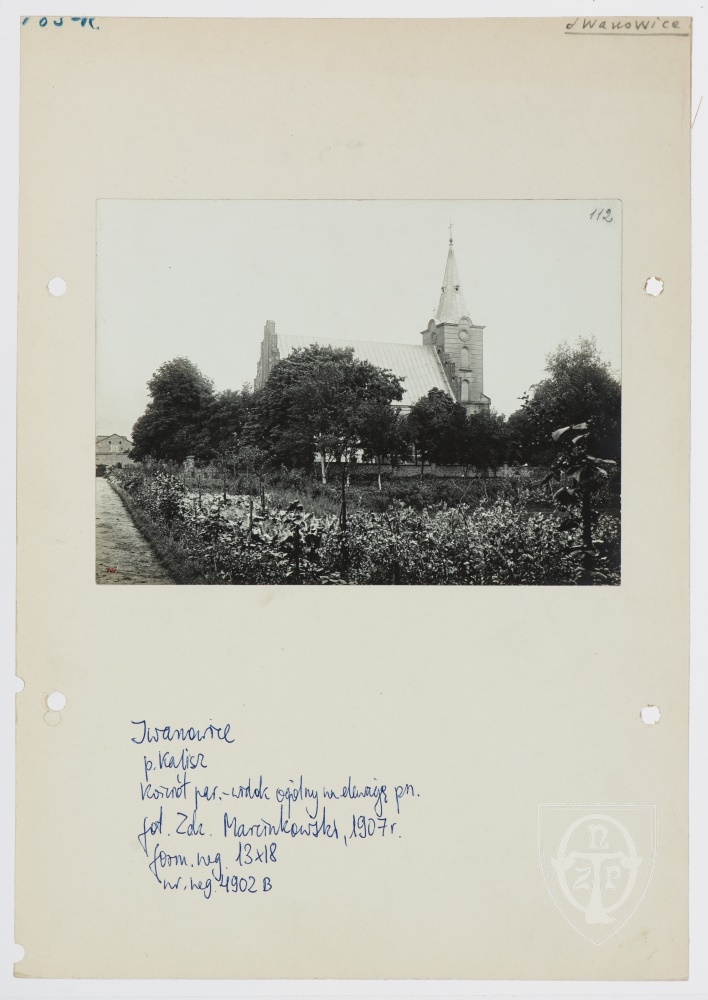 Iwanowice
112
Iwanowice
p. Kalisz
Kościół par. - widok ogólny na elewację pn.
fot. Zdz. Marcinkowski, 1907 r.
form. neg. 13x18
nr. neg. 4902 B
T n Z P